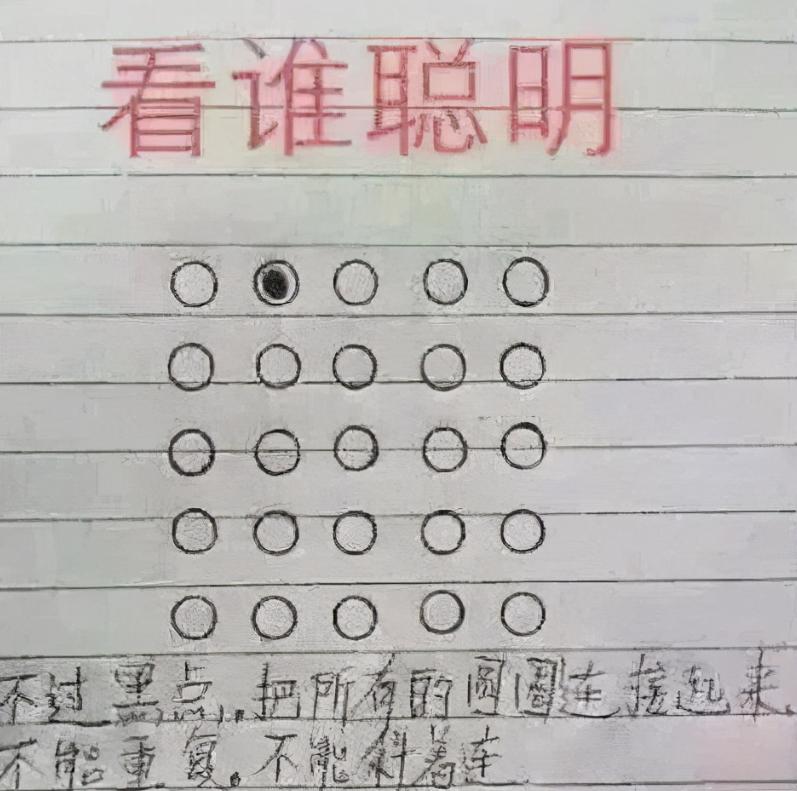 看谁聪明
不过黑点.把所有的圆圈连接起来.
不能重复.不能斜着连